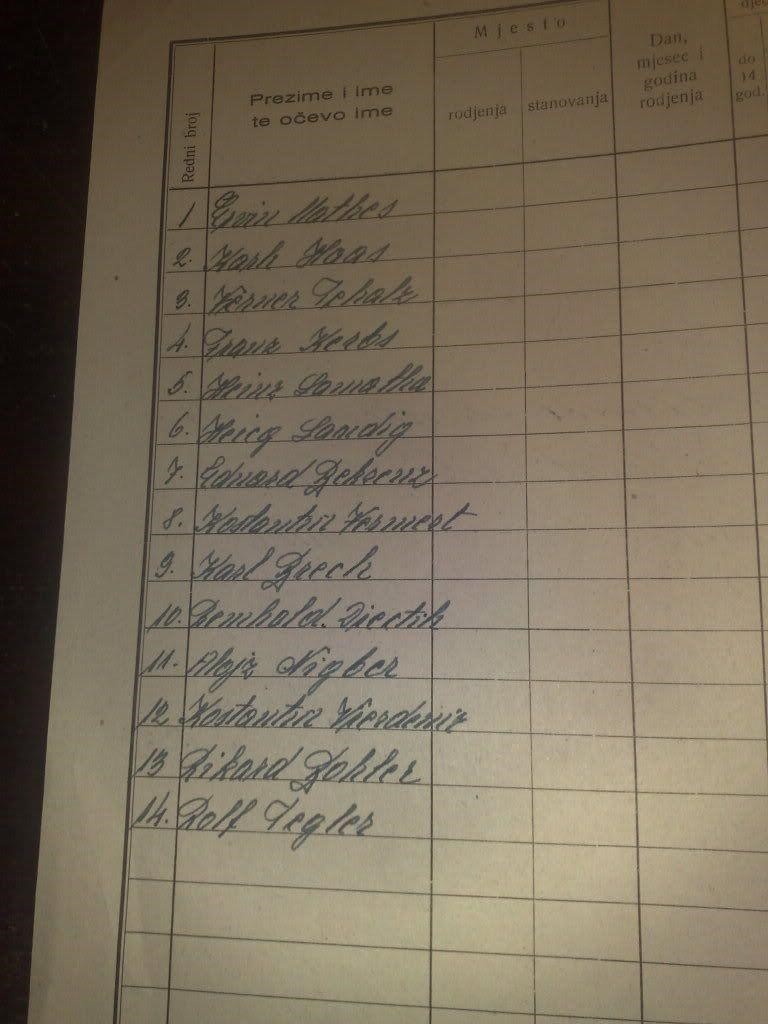 Redni broj
Prezime i ime
te očevo ime
Mjesto
rodjenja
stanovanja
Dan,
mjesec i
godina
rodjenja
do
14
god.
1 Ervin Mathes
2. Karh Haas
3. Verner Scholz
4. Franz Kerbs
5. Heinz Lamatka
6. Landig
7. Eduard
8. Kostantin Vermest
9. Karl Brech
10. Remhold.
11. Alojz Nigber
12 Kostantin
13 Rikard Bohler
14. Rolf Tegler